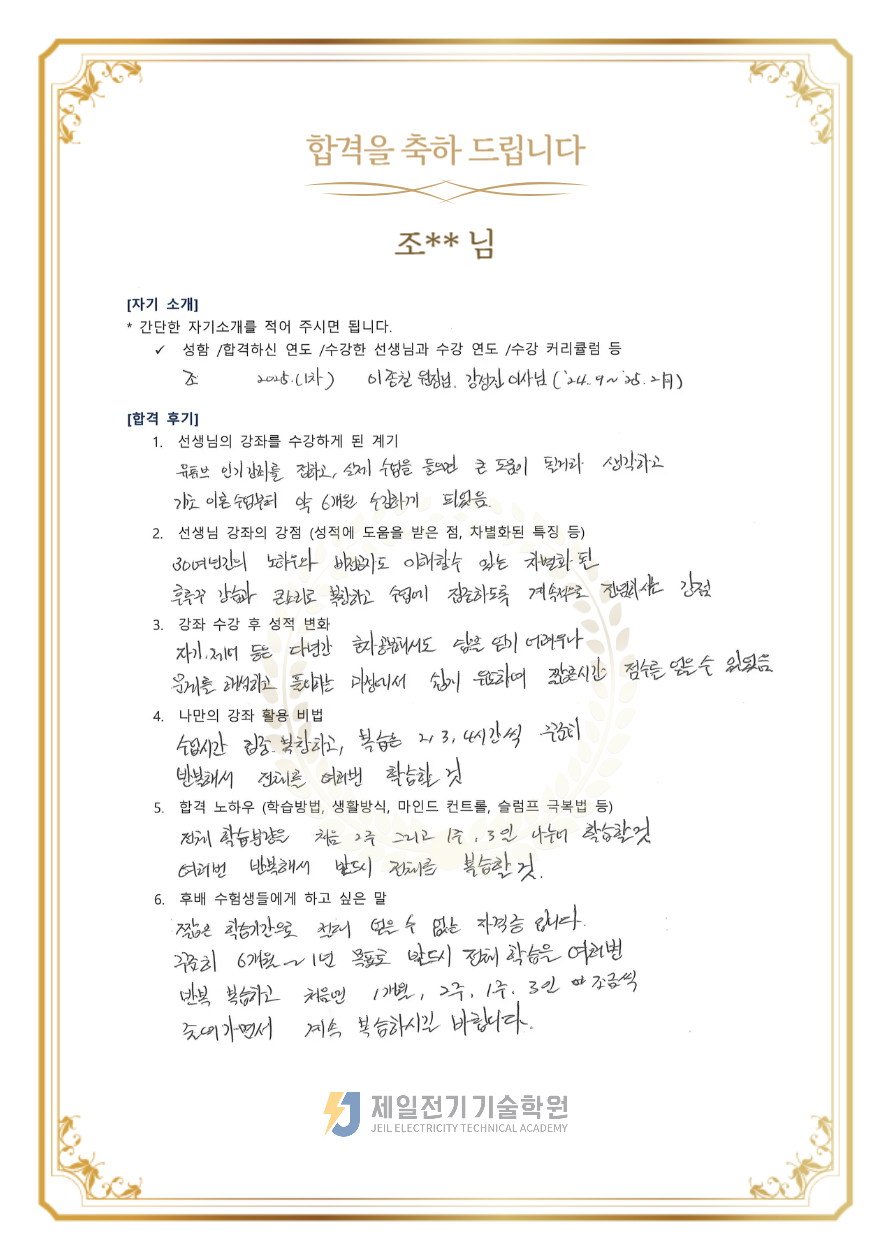 합격을 축하 드립니다
조** 님
[자기 소개]
* 간단한 자기소개를 적어 주시면 됩니다.
✓ 성함 /합격하신 연도 /수강한 선생님과 수강 연도 /수강 커리큘럼 등
조 2025.(1차) 이종칠 원장님, 강정진 이사님 ('24. 9 ~ '25. 2月)
[합격 후기]
1. 선생님의 강좌를 수강하게 된 계기
유튜브 인기강의를 접하고, 실제 수업을 들으면 큰 도움이 될거라 생각하고
기초 이론 수업부터 약 6개월 수강하게 되었음.
2. 선생님 강좌의 강점 (성적에 도움을 받은 점, 차별화된 특징 등)
30여년간의 노하우와 비전공자도 이해할수 있는 차별화 된
강습과 큰소리로 복창하고 수업에 집중하도록 계속적으로 강점
3. 강좌 수강 후 성적 변화
자기, 제어 등은 다년간 혼자공부해서도 답을 얻기 어려우나
문제를 해석하고 풀이하는 과정에서 쉽게 짧은시간 점수를 얻을 수 있었음
4. 나만의 강좌 활용 비법
수업시간 복창하고, 복습은 2, 3, 4시간씩 꾸준히
반복해서 전체를 여러번 학습할 것
5. 합격 노하우 (학습방법, 생활방식, 마인드 컨트롤, 슬럼프 극복법 등)
전체 학습분량은 처음 2주 그리고 1주, 3일 나누어 학습할것
여러번 반복해서 반드시 전체를 복습할 것.
6. 후배 수험생들에게 하고 싶은 말
짧은 학습기간으로 얻을 수 없는 자격증 입니다.
꾸준히 6개월 ~ 1년 목표로 반드시 전체 학습을 여러번
반복 복습하고 처음엔 1개월, 2주, 1주, 3일 조금씩
줄여가면서 계속 복습하시길 바랍니다.
제일전기기술학원
JEIL ELECTRICITY TECHNICAL ACADEMY